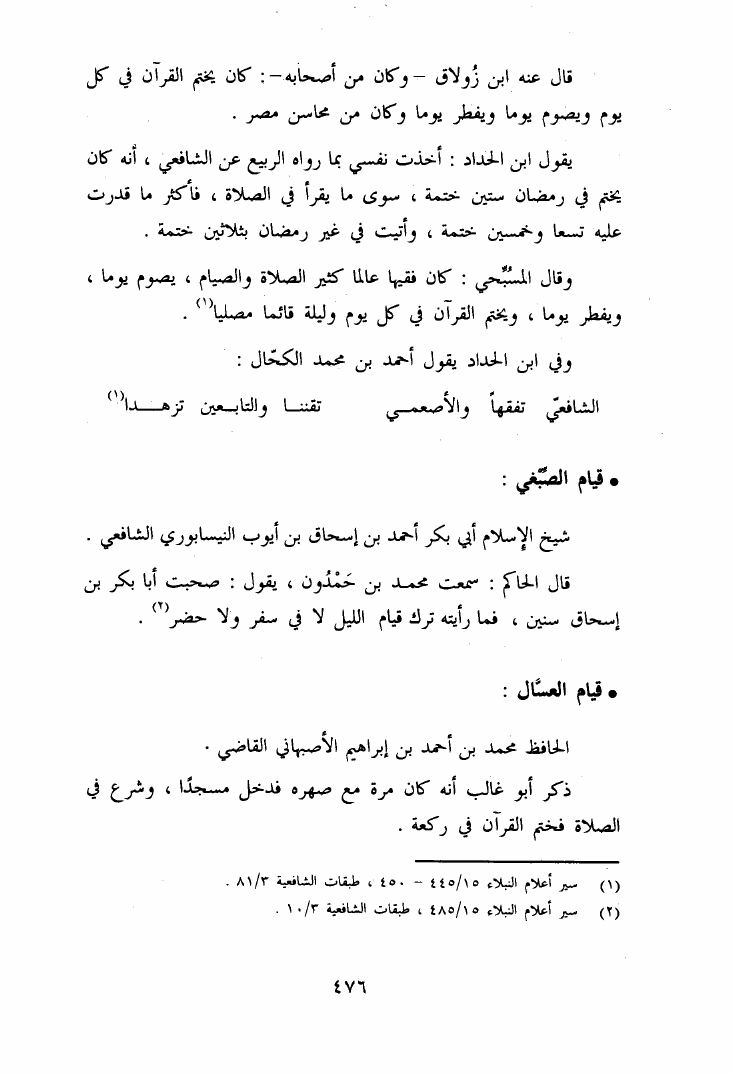 قال عنه ابن زُولاق – وكان من أصحابه– : كان يختم القرآن في كل
يوم ويصوم يوما ويفطر يوما وكان من محاسن مصر .
يقول ابن الحداد : أخذت نفسي بما رواه الربيع عن الشافعي ، أنه كان
يختم في رمضان ستين ختمة ، سوى ما يقرأ في الصلاة ، فأكثر ما قدرت
عليه تسعا وخمسين ختمة ، وأتيت في غير رمضان بثلاثين ختمة .
وقال المسُبِّحي : كان فقيها عالما كثير الصلاة والصيام ، يصوم يوما ،
ويفطر يوما ، ويختم القرآن في كل يوم وليلة قائما مصليا(١) .
وفي ابن الحداد يقول أحمد بن محمد الكحّال :
الشافعيّ تفقهاً والأصعمـي تقننـا والتابـعين تزهـــدا(١)
• قيام الصِّبْغي :
شيخ الإسلام أبي بكر أحمد بن إسحاق بن أيوب النيسابوري الشافعي .
قال الحاكم : سمعت محمد بن حَمْدُون ، يقول : صحبت أبا بكر بن
إسحاق سنين ، فما رأيته ترك قيام الليل لا في سفر ولا حضر(٢) .
• قيام العسَّال :
الحافظ محمد بن أحمد بن إبراهيم الأصبهاني القاضي .
ذكر أبو غالب أنه كان مرة مع صهره فدخل مسجدًا ، وشرع في
الصلاة فختم القرآن في ركعة .
(١) سير أعلام النبلاء ٤٤٥/١٥ – ٤٥٠ ، طبقات الشافعية ٨١/٣ .
(٢) سير أعلام النبلاء ٤٨٥/١٥ ، طبقات الشافعية ١٠/٣ .
٤٧٦